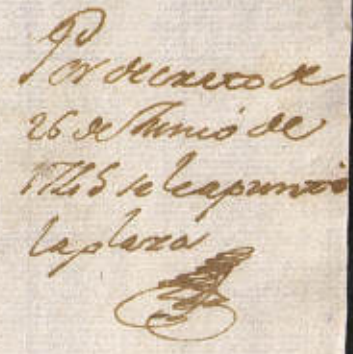 Por decreto de
26 de Junio de
1715 se le apuntó
la plaza